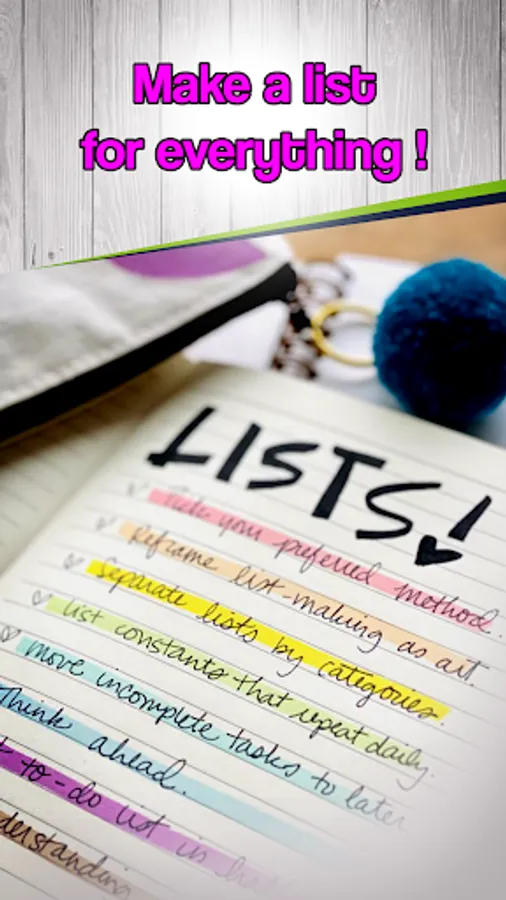 Make a list
for everything !
LISTS!
Pick your preferred method.
Reframe list-making as art.
Separate lists by categories.
list constants that repeat daily.
move incomplete tasks to later
Think ahead.
to-do list in